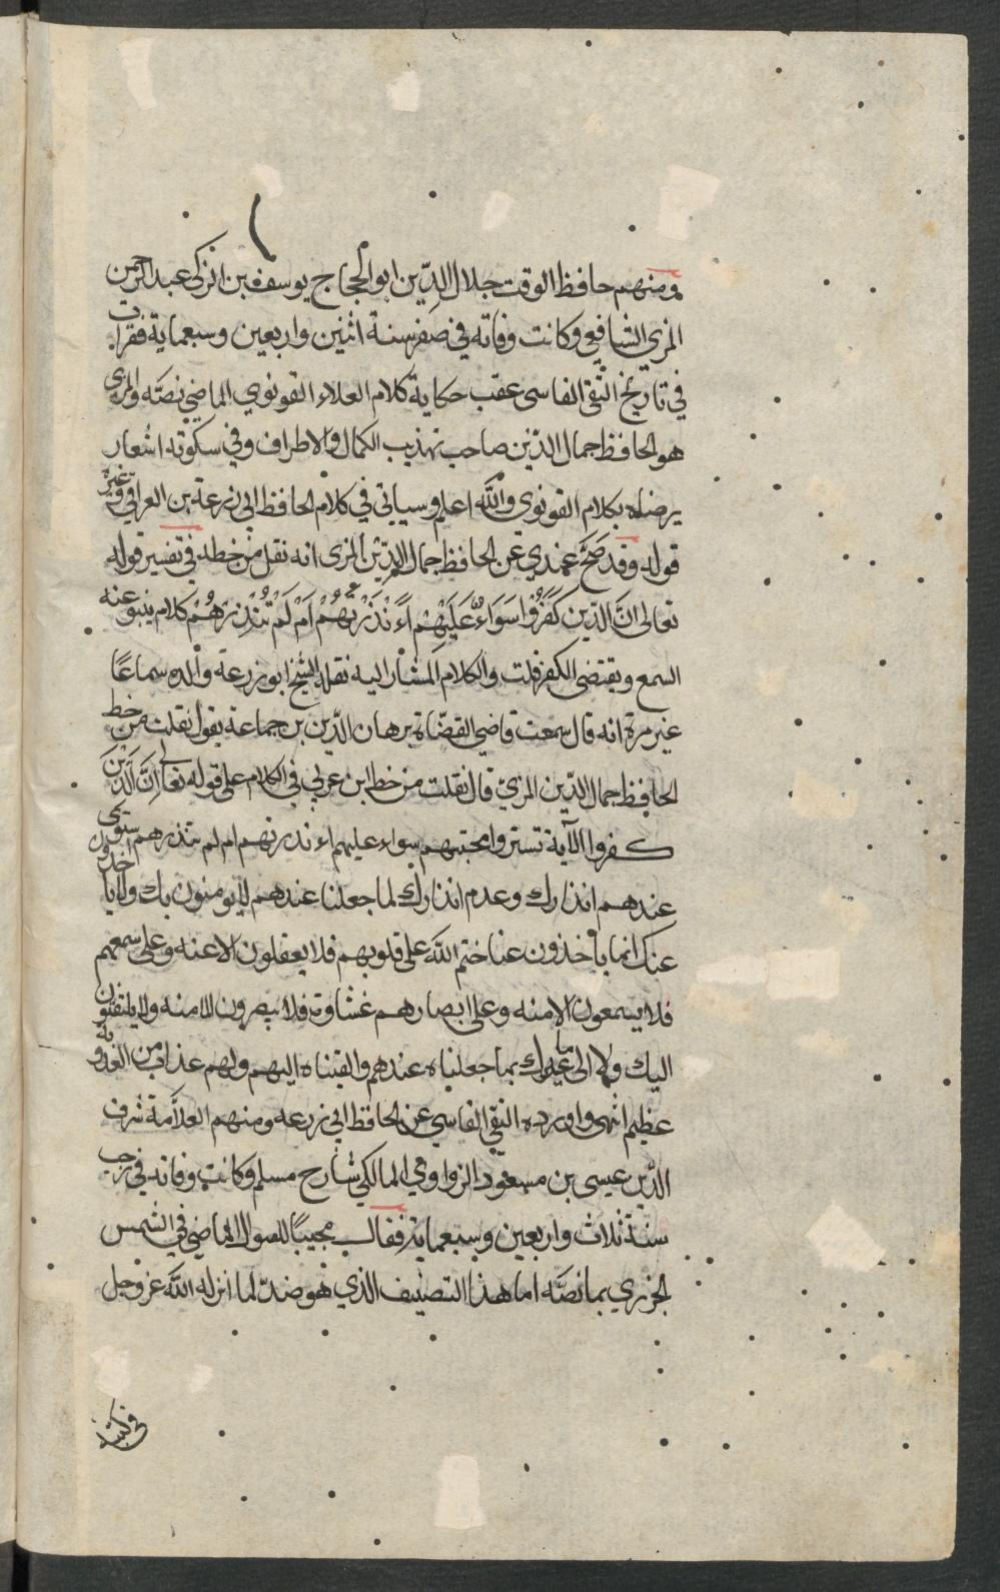 ومنهم حافظ الوقت جلال الدّين ابو الحجاج يوسف بن الزكي عبد الرحمن
المزي الشافعي وكانت وفاته في صفر سنة اثنين واربعين وسبعماية فقرات
في تاريخ التقي الفاسي عقب حكاية كلام العلاء القونوي الماضي نصّه والمزي
هو الحافظ جمال الدّين صاحب تهذيب الكمال والاطراف وفي سكوته اشعار
برضاه بكلام القونوي والله اعلم وسياتي في كلام الحافظ ابي زرعة بن العراقي وغيره
قوله وقد صَحَّ عندي عن الحافظ جمال الدّين المزى انه نقل من خطه في تفسير قوله
تعالى انَّ الَّذين كَفَرُوا سَوَاءٌ عَلَيْهِمْ اَءَنْذَرْتَهُمْ اَمْ لَمْ تُنْذِرْهُمْ كلام ينبو عنه
السمع ويقتضى الكفر قلت والكلام المشار اليه نقله الشيخ ابو زرعة والده سماعًا
غير مرة انه قال سمعت قاضي القضاة برهان الدّين بن جماعة يقول نقلت من خط
الحافظ جمال الدّين المزيّ قال نقلت من خط ابن عربي في الكلام على قوله تعالى انَّ الَّذين
كفروا الآية تستروا محبتهم سواء عليهم اءنذرتهم ام لم تنذرهم استوى
عندهم انذارك وعدم انذارك لما جعلنا عندهم لا يومنون بك ولا ياخذون
عنك انما ياخذون عنا ختم الله على قلوبهم فلا يعقلون الا عنه وعلى سمعهم
فلا يسمعون الا منه وعلى ابصارهم غشاوة فلا يبصرون الا منه ولا يلتفتون
اليك ولا الى غيرك بما جعلناه عندهم والقيناه اليهم ولهم عذاب من العذوبة
عظيم انتهى واورده التقي الفاسي عن الحافظ ابي زرعه ومنهم العلاَّمة شرف
الدّين عيسى بن مسعود الزواوي المالكي شارح مسلم وكانت وفاته في رجب
سنة ثلاث واربعين وسبعماية فقال مجيبًا للسوال الماضي في الشمس
الجزري بما نصّه اما هذا التصنيف الذي هو ضدّ لما انزله الله عز وجل